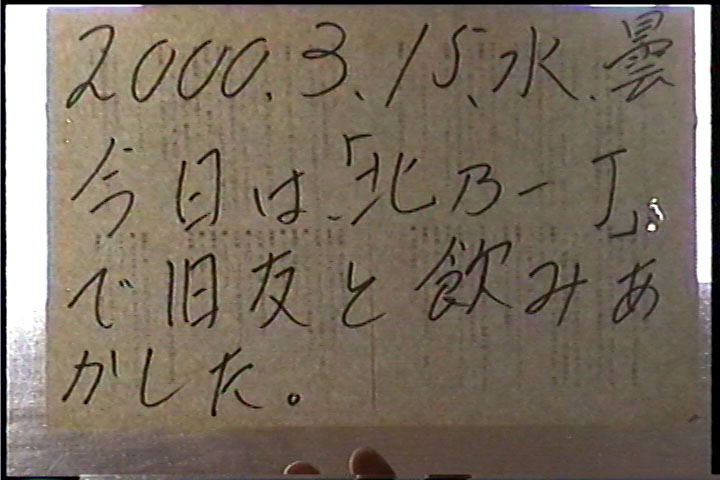 2000.3.15.水.曇
今日は、「北乃一丁」
で旧友と飲みあ
かした。